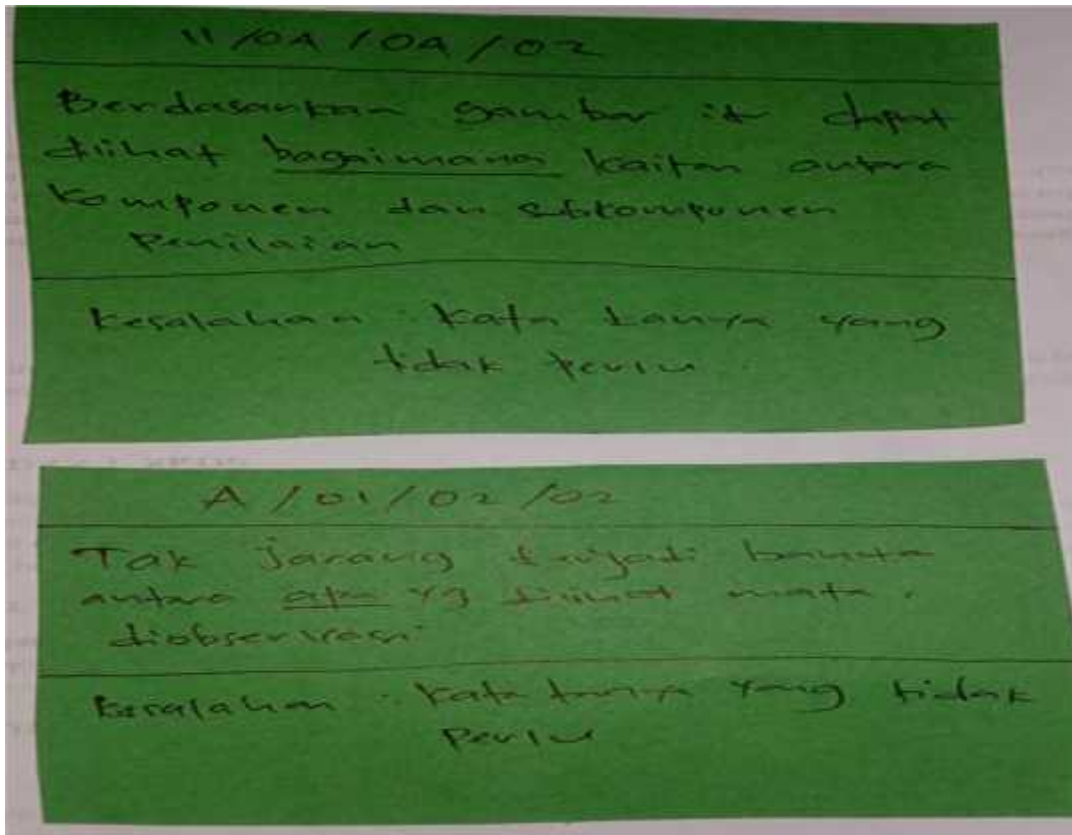 11/0A/0A/02
Berdasarkan gambar it dapat
dilihat bagaimana kaitan antara
Komponen dan subkomponen
Penilaian
Kesalahan : Kata tanya yang
tidak perlu.
A/01/02/02
Tak jarang terjadi
antara apa yg dilihat mata,
diobservasi
Kesalahan : Kata tanya yang tidak
Perlu